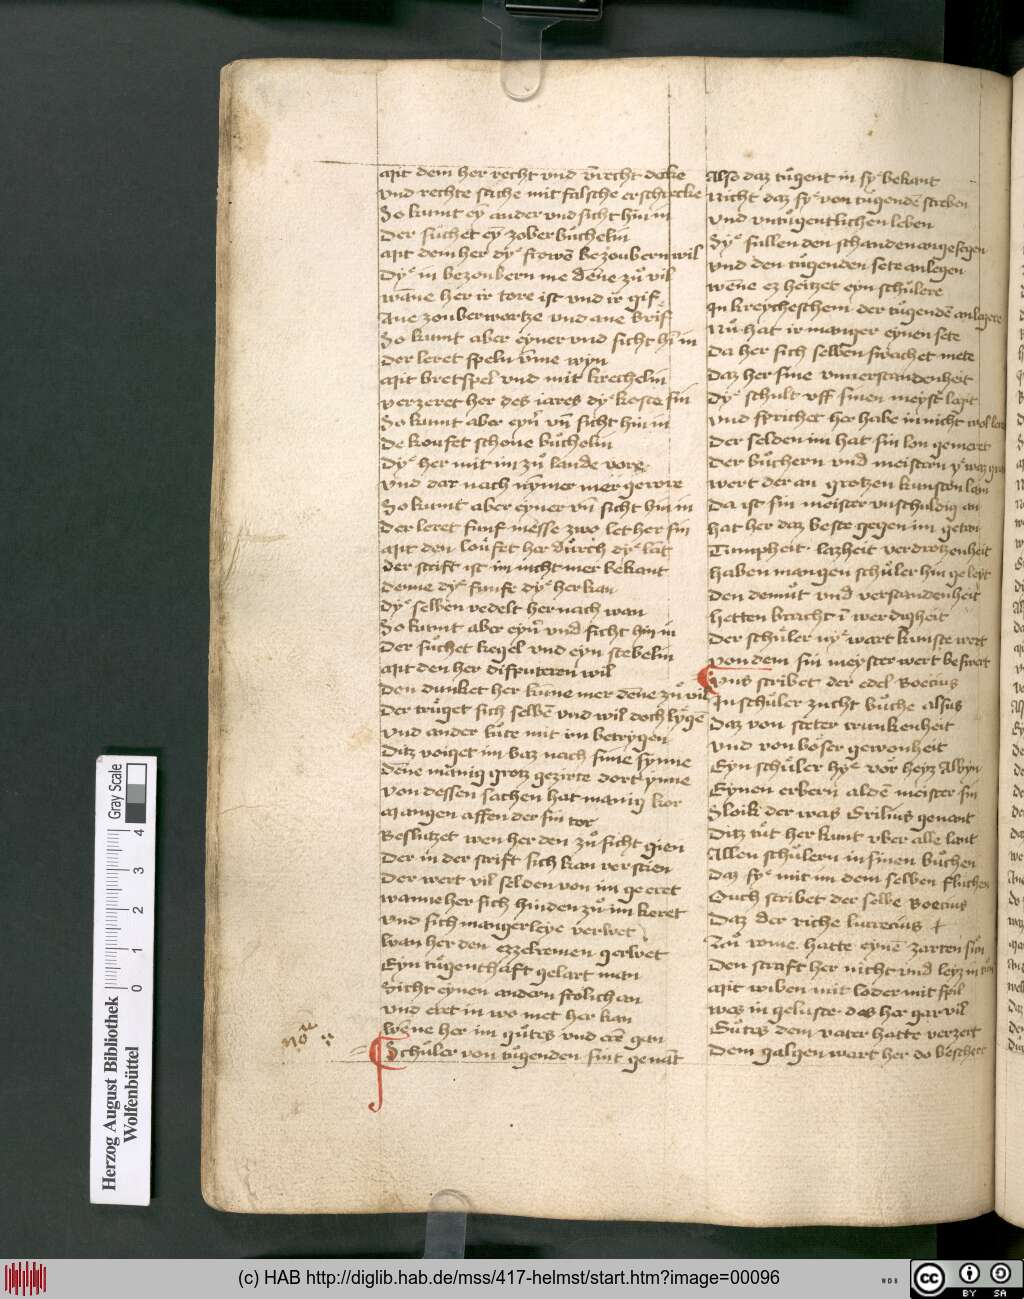 Mit dem her recht vnd vnrecht decke
vnd rechte sache mit falsche erschrecke
So kumt ey ander vnd sicht hin in
Der suchet ey zober buchelin
Mit dem her dy frowe bezoubern wil
Dy in bezoubern me denne zu vil
wanne her ir tore ist vnd ir gif
Ane zouber wortze vnd ane brif
So kumt aber eyner vnd sicht hin in
der leret speln vme wyn
Mit bretspel vnd mit krechelin
verzeret her des iares dy koste sin
So kumt aber eyn vn sicht hin in
De koufet schone buchelin
Dy her mit im zu lande vore
vnd dar nach nymer mer
So kumt aber eyner vn sicht hin in
der leret funf messe zwo let her sin
Mit den loufet her durch dy lat
der scrift ist im nicht mer bekant
denne dy funfe dy her kan
dy selben redelt her nach wan
So kumt aber eyn vnd sicht hin in
Der suchet kegel vnd eyn stebelin
Mit den her disputeren wil
Den dunket her kunne mer denne zu vil
Der truget sich selbe vnd wil doch lyge
vnd ander lute mit im betrygen
Ditz voiget im baz nach sime synne
denne manig grotz gezirte dort ynne
von dessen sachen hat manig kor
Mangen affen der sin tor
Beslutzet wen her den zu sicht gien
Der in der scrift sich kan verstien
Der wert vil selden von im geeret
wanne her sich hinden zu im keret
vnd sich mangerleye verwet
wan her den ezzelremen gerwet
Eyn tugenthaft gelart man
Sicht eynen andern frolich an
vnd eret in wo met her kan
wenne her im gutes vnd ere gan
Schuler von tugenden sint genant
Also daz tugent in sy bekant
Nicht daz sy von tugende streben
vnd vntugentlichen leben
Sy sullen den schanden angesegen
vnd den tugenden sete anlegen
wenne ez heitzet eyn schulere
In kreycheschem der tugende anlegere
Nu hat ir manger eynen sete
Da her sich selben swachet mete
Daz her sine vnuerstandenheit
dy schult vff sinen meyster leyt
vnd sprichet her habe in nicht wol
Der selden im hat sin lon gemeret
Der buchern vnd meistern
wert der an grotzen kunsten lam
Da ist sin meister vnschuldig an
hat her daz beste gegen im getan
Tumpheit lazheit verdrotzenheit
haben mangen schuler hin geleyt
Den demut vnd verstandenheit
Hetten bracht i werdigheit
Der schuler ny wart kunste wert
von dem sin meyster wert beswert
vns scribet der edel Boecius
In schuler zucht buche alsus
Daz von steter trunkenheit
vnd von boser gewonheit
Eyn schuler hy vor heyz Alwyn
Eynen erbern alden meister sin
Sloik der was Grilius genant
Ditz tut her kunt vber alle lant
Allen schulern in sinen buchen
Daz sy mit im dem selben fluchen
Ouch scribet der selbe Boecius
Daz der riche lucrecius
Zu rome hatte eyne zarten sun
Den straft her nicht vnd leyz in
Mit wiben mit loder mit spil
wes in geluste des her gar vil
Gutes dem vater hatte verzert
Dem galgen wart her do beschert
Herzog August Bibliothek
Wolfenbüttel
0 1 2 3 4
Gray Scale
(c) HAB http://diglib.hab.de/mss/417-helmst/start.htm?image=00096
WDB
cc BY SA